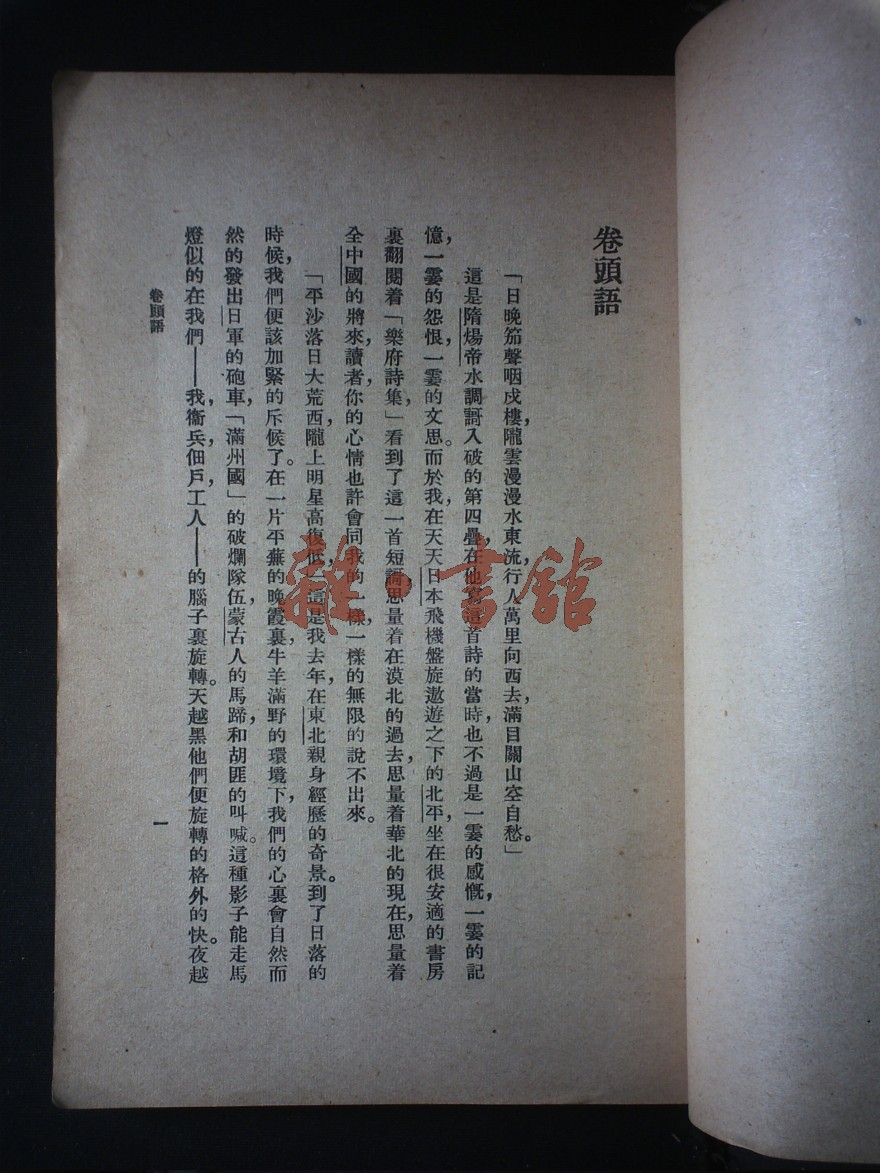 卷頭語
「日晚笳聲咽戍樓，隴雲漫漫水東流，行人萬里向西去，滿目關山空自愁。」
這是隋煬帝水調謌入破的第四疊，在他寫這首詩的當時，也不過是一霎的感慨，一霎的記
憶，一霎的怨恨，一霎的文思。而於我，在天天日本飛機盤旋遨遊之下的北平，坐在很安適的書房
裏翻閱着「樂府詩集」，看到了這一首短謌，思量着在漠北的過去，思量着華北的現在，思量着
全中國的將來，讀者，你的心情也許會同我的一樣，一樣的無限的說不出來。
「平沙落日大荒西，隴上明星高復低，」這是我去年，在東北親身經歷的奇景。到了日落的
時候，我們便該加緊的斥候了。在一片平蕪的晚霞裏，牛羊滿野的環境下，我們的心裏會自然而
然的發出日軍的砲車，「滿州國」的破爛隊伍，蒙古人的馬蹄，和胡匪的叫喊。這種影子能走馬
燈似的在我們——我，衞兵，佃戶，工人——的腦子裏旋轉。天越黑他們便旋轉的格外的快。夜越
卷頭語
一
雜·書館